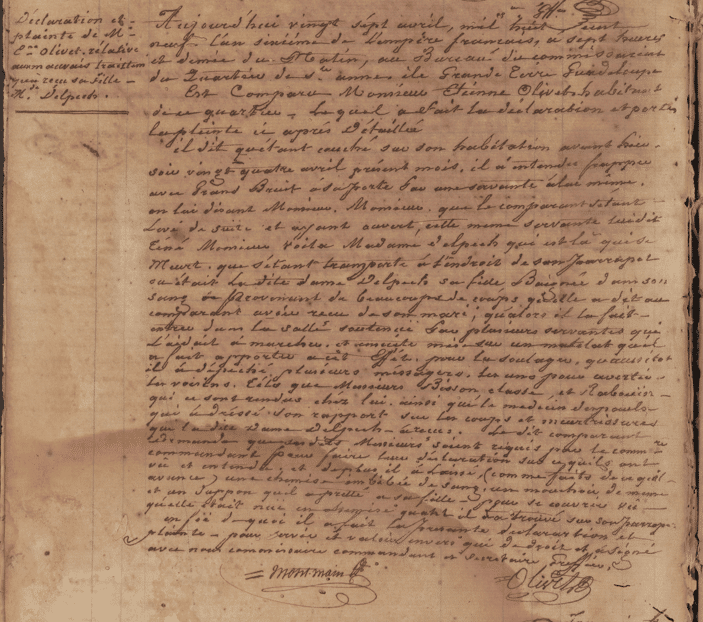 Déclaration et
plainte de M.
E.ne Olivet, relative
aux mauvais traitemen
qu'a reçu sa fille
M.de Delpech.
Aujourd'hui vingt sept avril, mil huit cent
neuf l'an sixième de l'empire français, à sept heures
et demie du matin, au Bureau du commissariat
du Quartier de S.te anne, ile Grande Terre Guadeloupe
Est Comparu Monsieur Etienne Olivet habitant
de ce quartier, Lequel a fait la déclaration et porté
la plainte ci après Détaillée
il dit qu'étant couché sur son habitation avant hier
soir vingt quatre avril présent mois, il a entendu frapper
avec Grand Bruit à sa porte par une servante à lui même.
en lui disant Monsieur, Monsieur, que le comparant s'étant
Levé de suite et ayant ouvert, cette même servante lui dit
Tené Monsieur voila Madame Delpech qui est là qui se
Meurt. que s'étant transporté à l'endroit de son parrapet
où était La dite dame Delpech sa fille Baignée dans son
sang de provenant de beaucoups de coups qu'elle a dit au
comparant avoir recu de son mari; qu'alors il la fait
entrer dans la salle soutenue par plusieurs servantes qui
L'aidait à marcher. et ensuite mis sur un matelat qu'il
a fait apporter à cet effet. pour la soulager, qu'aussitot
il a dépeché plusieurs messagers. Les uns pour avertir
les voisins. Tels que Messieurs Bisson classe et
qui se sont rendus chez lui. ainsi que le médecin
qui a dressé son rapport sur les coups et meurtrissures
que la dite Dame Delpech a reçus. Le dit comparant
demande que Messieurs soient requis par le comm.re
commandant pour faire leur déclaration sur ce qu'ils ont
vu et entendu; et de plus il a laissé (comme faits de ce qu'il
avance) une chemise imbibée de sang, un mouchoir de même
et un juppon qu'il a preté à sa fille pour se couvrir vu
qu'elle était nue en quant il l'a trouvé sur son parrapet
en foi de quoi il a fait la présente déclaration et
plainte pour servir et valoir envers qui de droit et a signé
avec nous commissaire commandant et secretaire Greffier
Montmain Olivet